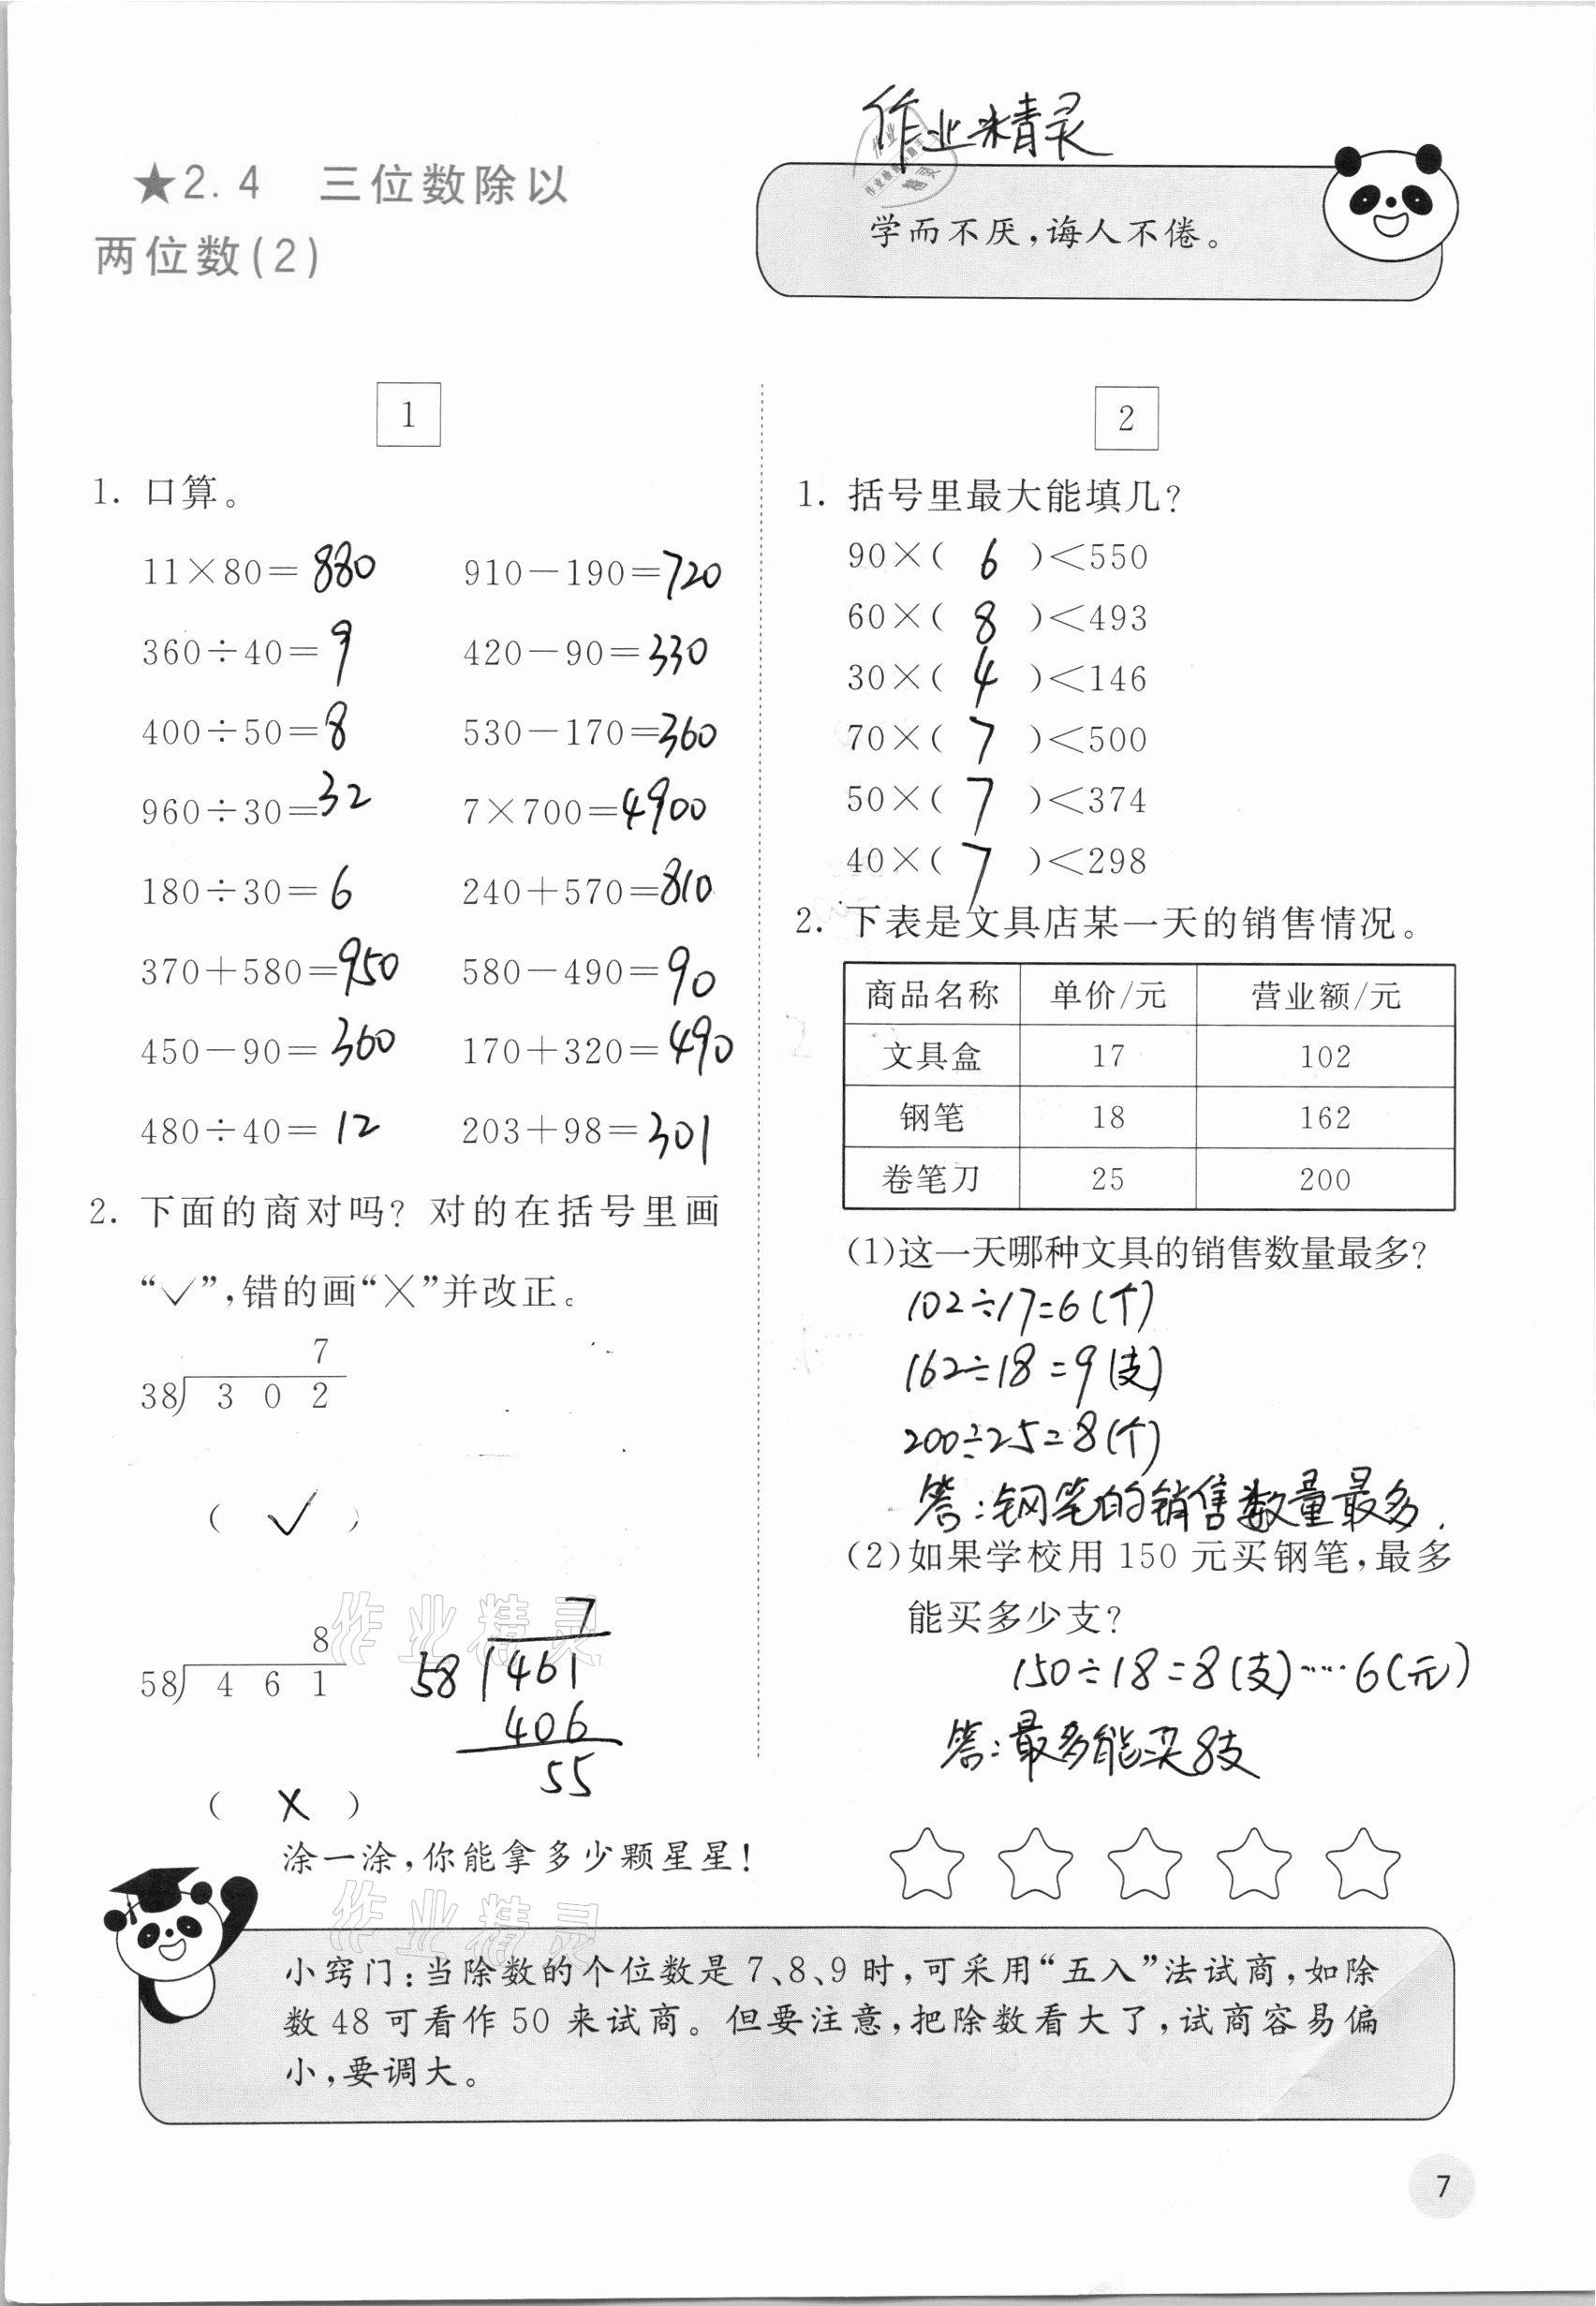 作业精灵
★2.4 三位数除以
两位数(2)
学而不厌,诲人不倦。
1
1. 口算。
11×80=880 910-190=720
360÷40=9 420-90=330
400÷50=8 530-170=360
960÷30=32 7×700=4900
180÷30=6 240+570=810
370+580=950 580-490=90
450-90=360 170+320=490
480÷40=12 203+98=301
2. 下面的商对吗? 对的在括号里画
“✓”,错的画“×”并改正。
7
38)302
( ✓ )
8
58)461
7
58)461
406
55
( × )
2
1. 括号里最大能填几?
90×( 6 )<550
60×( 8 )<493
30×( 4 )<146
70×( 7 )<500
50×( 7 )<374
40×( 7 )<298
2. 下表是文具店某一天的销售情况。
商品名称 单价/元 营业额/元
文具盒 17 102
钢笔 18 162
卷笔刀 25 200
(1)这一天哪种文具的销售数量最多?
102÷17=6(个)
162÷18=9(支)
200÷25=8(个)
答:钢笔的销售数量最多.
(2)如果学校用 150 元买钢笔,最多
能买多少支?
150÷18=8(支)……6(元)
答:最多能买8支
作业精灵
涂一涂,你能拿多少颗星星!
作业精灵
小窍门:当除数的个位数是 7、8、9 时,可采用“五入”法试商,如除
数 48 可看作 50 来试商。但要注意,把除数看大了,试商容易偏
小,要调大。
7